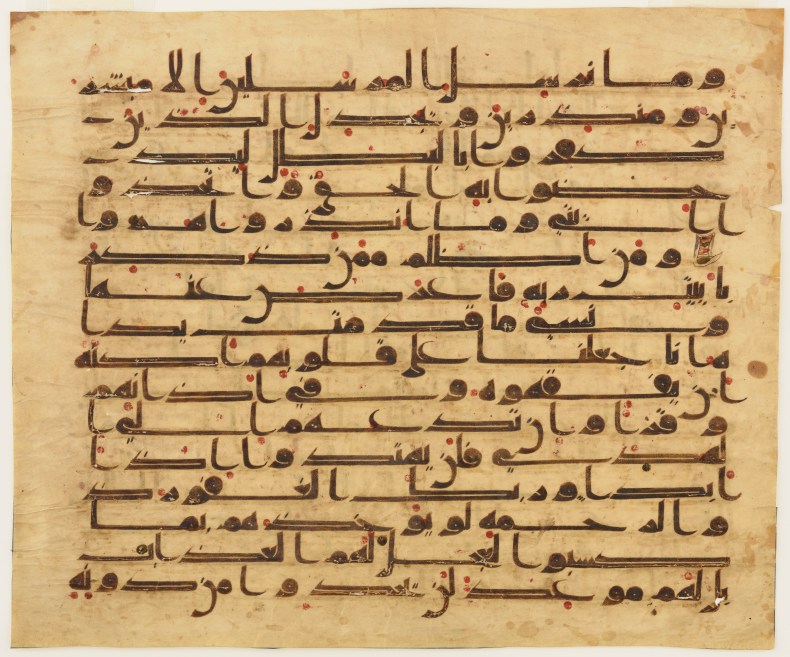 وما نرسل المرسلين الا مبشر
ين ومنذرين ويجدل الذين
كفروا بالبطل ليد
حضوا به الحق واتخذو
ا ايتي وما انذروا هزوا
ومن اظلم ممن ذكر
بايت ربه فاعرض عنها
ونسي ما قدمت يدا
ه انا جعلنا على قلوبهم اكنة
ان يفقهوه وفي اذانهم
وقرا وان تدعهم الى ا
لهدى فلن يهتدوا اذا
ابدا وربك الغفور ذ
و الرحمة لو يوخذهم بما
كسبوا لعجل لهم العذاب
بل لهم موعد لن يجدوا من دونه